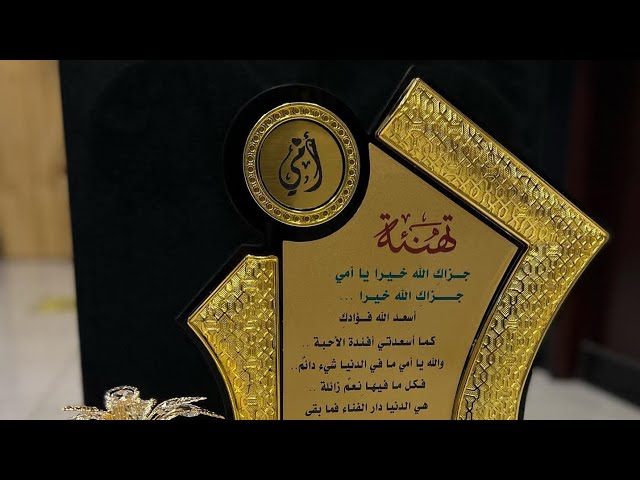 أمي
تهنئة
جزاك الله خيرا يا أمي
جزاك الله خيرا ...
أسعد الله فؤادك
كما أسعدتي أفئدة الأحبة ..
والله يا أمي ما في الدنيا شيء دائم..
فكل ما فيها نعم زائلة ..
هي الدنيا دار الفناء فما بقى